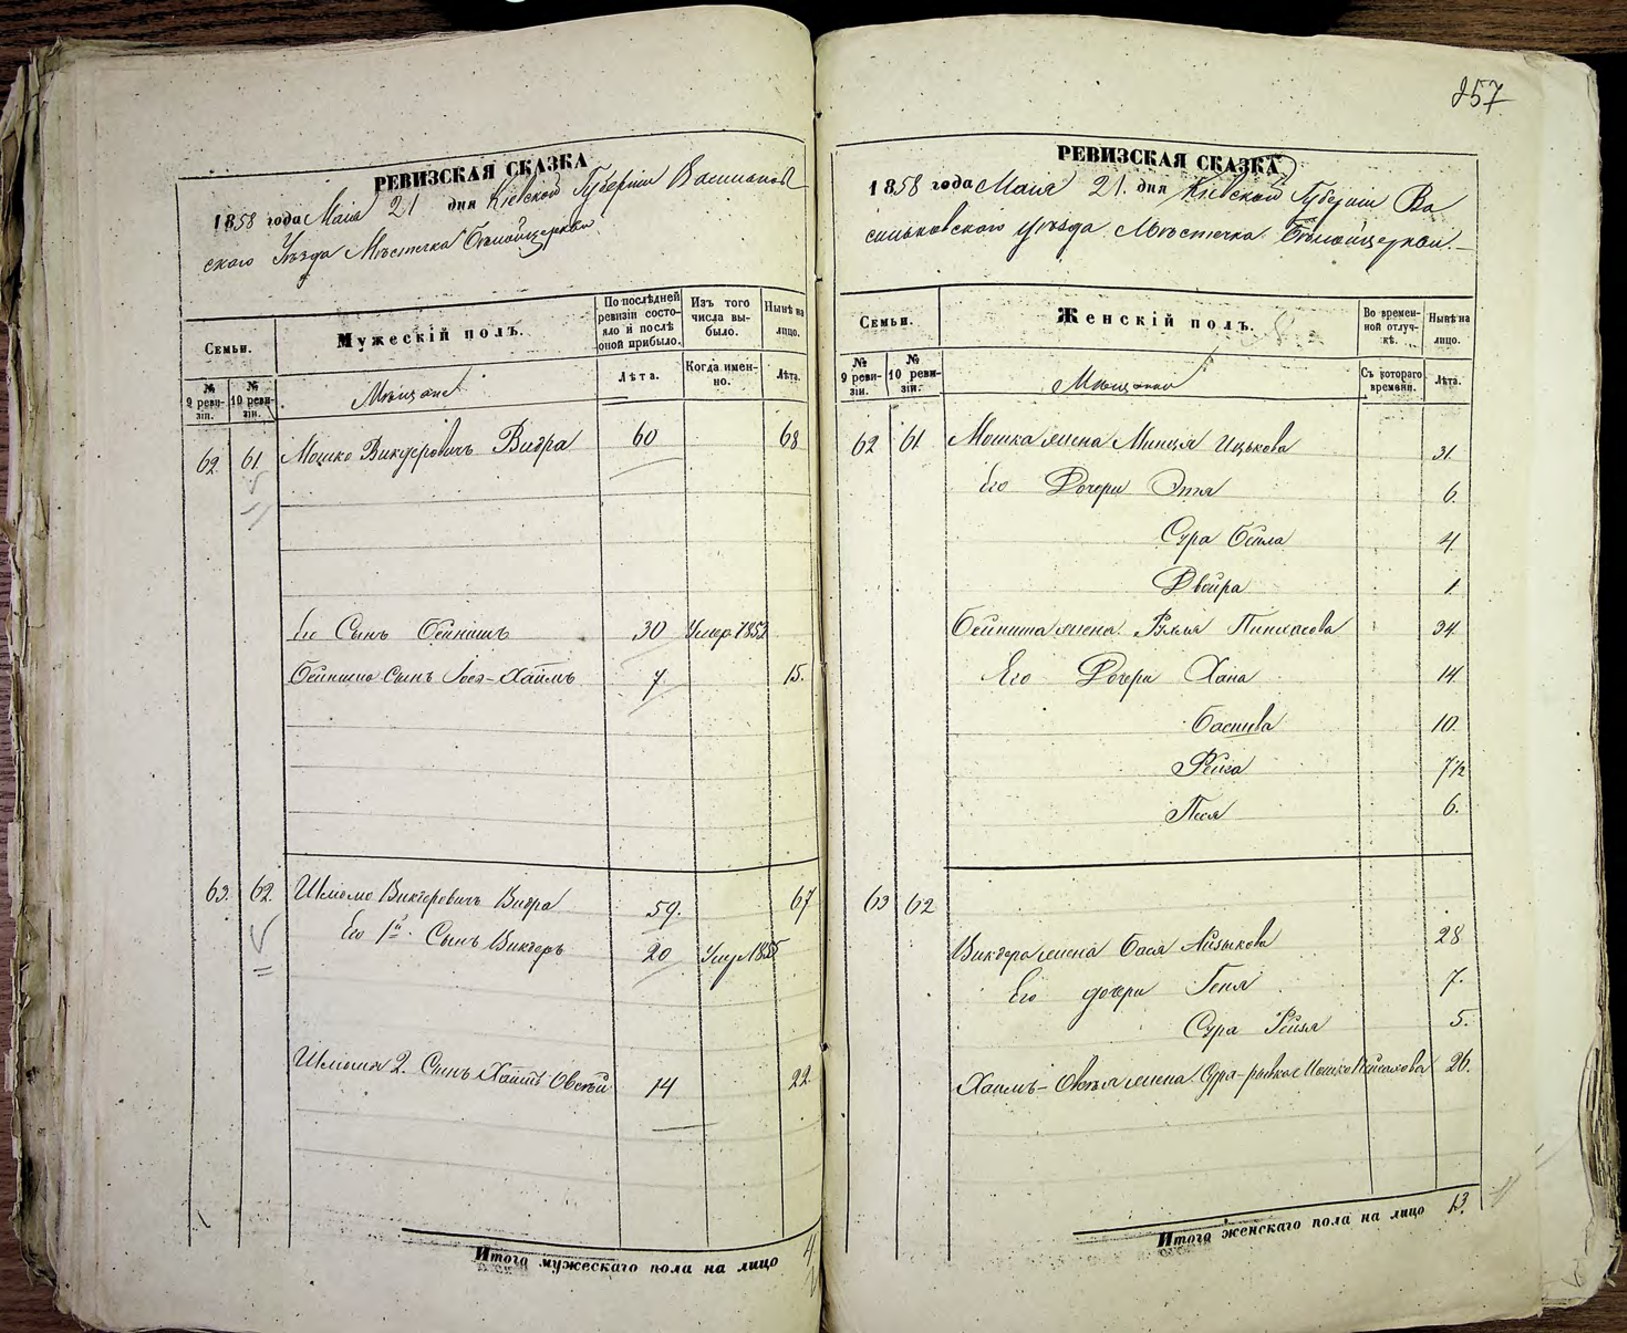 РЕВИЗСКАЯ СКАЗКА
1858 года Маія 21 дня Кіевской Губерніи Васильков
скаго Уѣзда Мѣстечка Бѣлойцеркви
Семьи.
Мужескій полъ.
По послѣдней ревизіи состояло и послѣ оной прибыло.
Изъ того числа выбыло.
Нынѣ на лицо.
№ 9 ревизіи.
№ 10 ревизіи.
Мѣщане
Лѣта.
Когда именно.
Лѣта.
62 61. Мошко Викдеровичъ Видра 60 68
Его Сынъ Бейнишъ 30 Умер. 1853
Бейниша Сынъ Іося-Хаимъ 7 15.
63. 62. Шлiомо Викдеровичъ Видра 59. 67
Его 1й Сынъ Викдеръ 20 Умер. 1855
Шлiомы 2. Сынъ Хаимъ Овсѣй 14 22.
Итого мужескаго пола на лицо 4
857
РЕВИЗСКАЯ СКАЗКА
1858 года Маія 21. дня Кіевской Губерніи Ва
сильковскаго уѣзда Мѣстечка Бѣлойцеркви.
Семьи.
Женскій полъ.
Во временной отлучкѣ.
Нынѣ на лицо.
№ 9 ревизіи.
№ 10 ревизіи.
Мѣщанки
Съ котораго времени.
Лѣта.
62 61 Мошка жена Минця Ицькова 31.
Его Дочери Этя 6.
Сура Бейла 4.
Двойра 1
Бейниша жена Рухля Пинхасова 34.
Его Дочери Хана 14
Басшива 10.
Рейза 7 1/2
Песя 6.
63 62
Викдера жена Бася Айзыкова 28
Его дочери Геня 7.
Сура Рейзя 5.
Хаимъ-Овсѣя жена Сура-Ривка 26.
Итого женскаго пола на лицо 13.